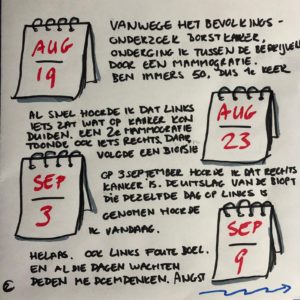 VANWEGE HET BEVOLKINGS-
ONDERZOEK BORSTKANKER,
ONDERGING IK TUSSEN DE BEDRIJVEN
DOOR EEN MAMMOGRAFIE.
BEN IMMERS 50, DUS 1e KEER
AUG
19
AL SNEL HOORDE IK DAT LINKS
IETS ZAT WAT OP KANKER KON
DUIDEN. EEN 2e MAMMOGRAFIE
TOONDE OOK IETS RECHTS. DAAR
VOLGDE EEN BIOPSIE
AUG
23
SEP
3
OP 3 SEPTEMBER HOORDE IK DAT RECHTS
KANKER IS. DE UITSLAG VAN DE BIOPT
DIE DEZELFDE DAG OP LINKS IS
GENOMEN HOORDE
IK VANDAAG.
SEP
9
HELAAS. OOK LINKS FOUTE BOEL.
EN AL DIE DAGEN WACHTEN
DEDEN ME DOEMDENKEN. ANGST